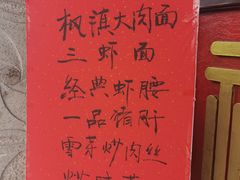 枫滇大肉面
三虾面
经典虾腰
一品猪肝
雪菜炒肉丝